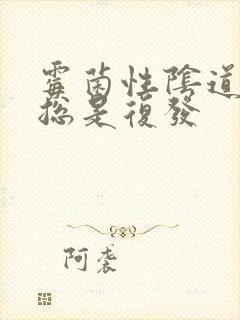 霉菌性陰道
總是復發
阿袭